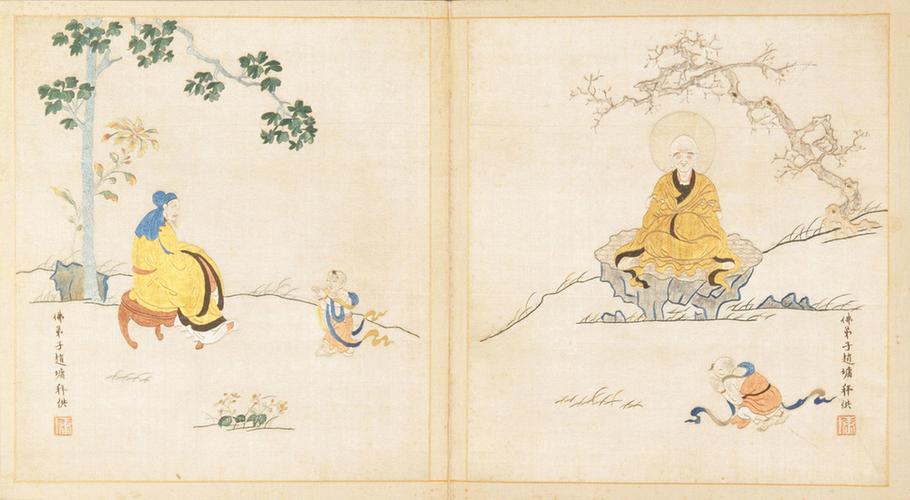 佛弟子趙墉拜供
佛弟子趙墉拜供